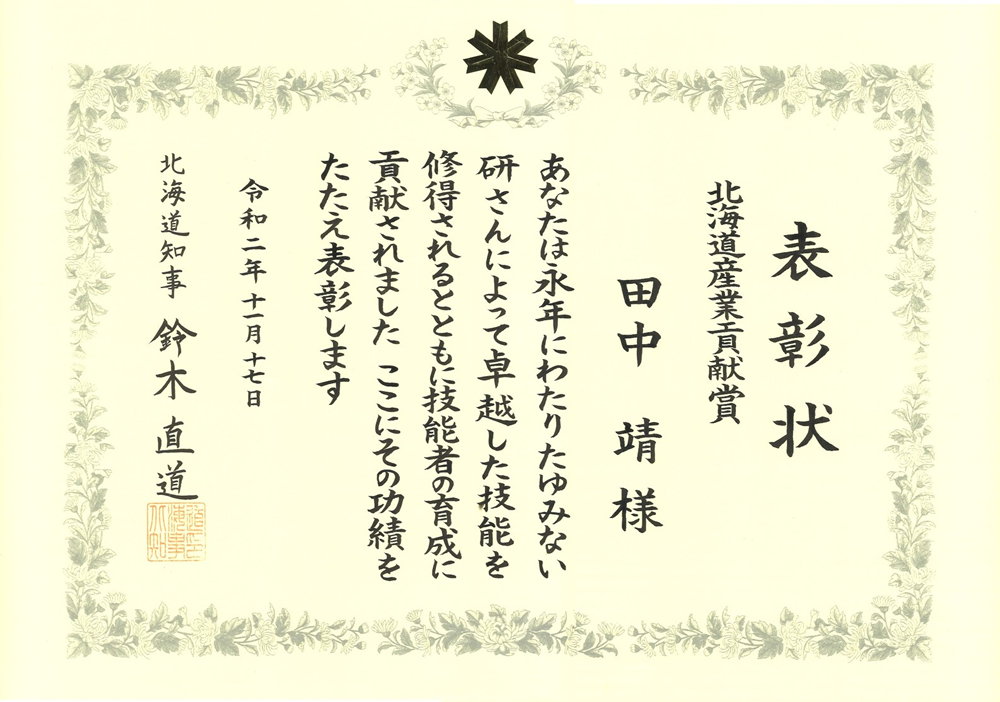 表彰状
北海道産業貢献賞
田中 靖 様
あなたは永年にわたりたゆみない
研さんによって卓越した技能を
修得されるとともに技能者の育成に
貢献されました ここにその功績を
たたえ表彰します
令和二年十一月十七日
北海道知事 鈴木直道